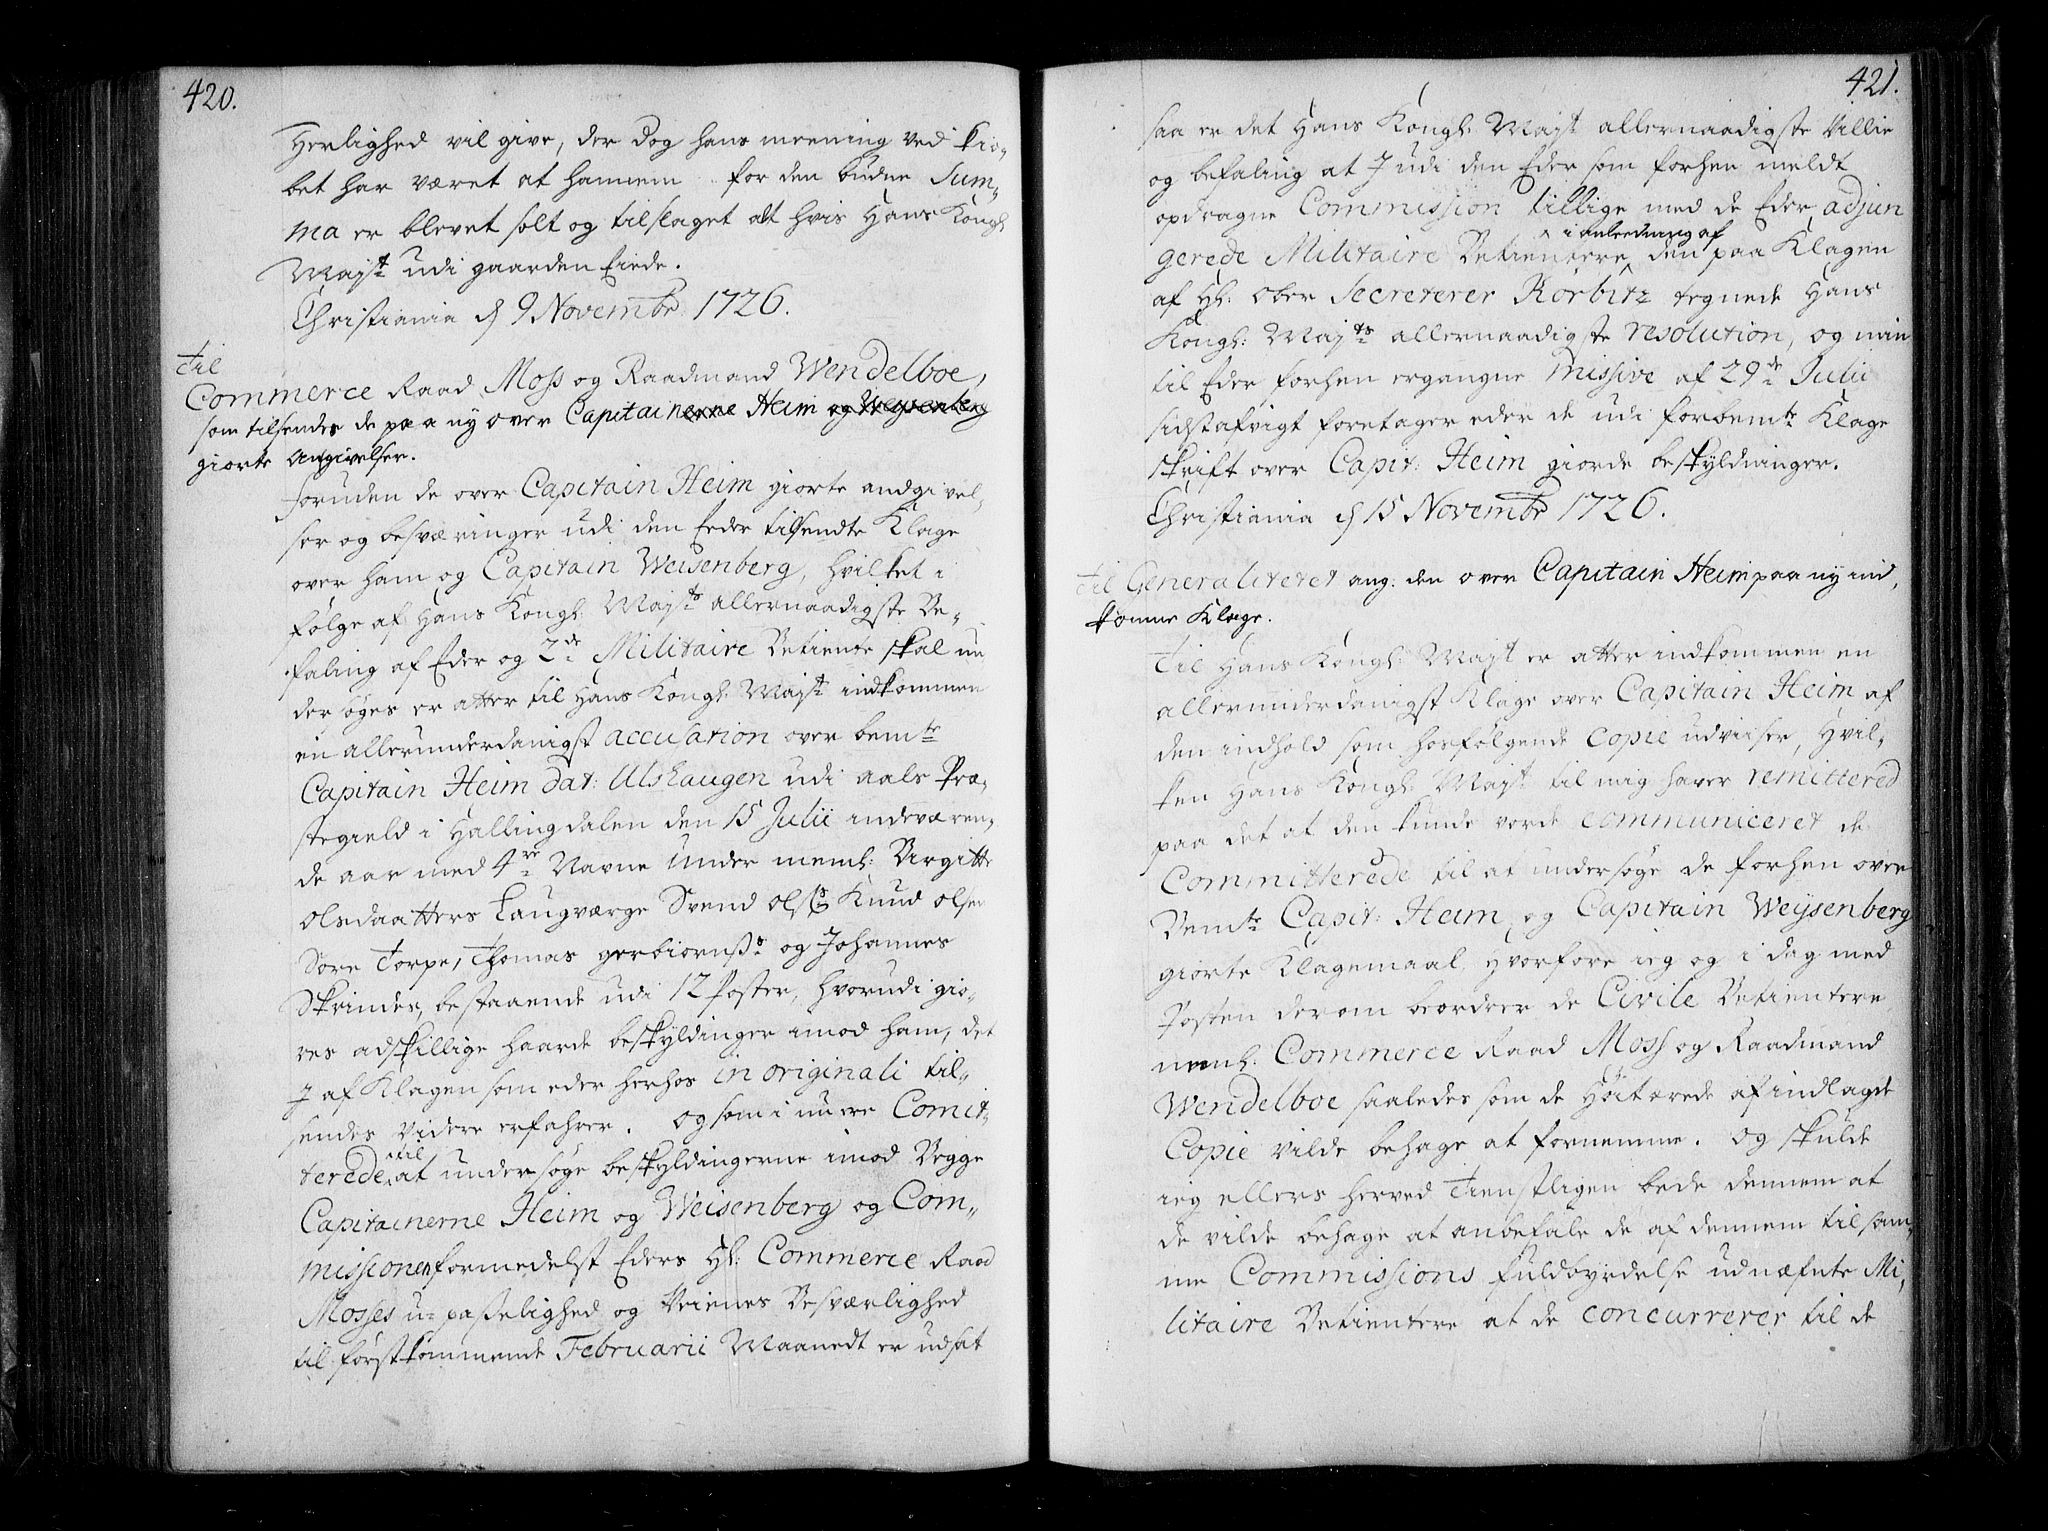 420.
Herlighed vil give, der dog hans meening ved kiø„
bet har været at hannem for den budne Sum„
ma er blevet solt og tilslaget alt hvis Hans Kongl
Mayt udi gaarden Eiede.
Christiania d 9 Novembr 1726.
Til
Commerce Raad Moss og Raadmand Wendelboe,
som tilsendes de paa ny over Capitainerne Heim og Weysenberg
giorte Angivelser.
foruden de over Capitain Heim giorte andgivel„
ser og besværinger udi den Eder tilsendte Klage
over ham og Capitain Weisenberg, hvilket i
følge af Hans Kongl. Mayts allernaadigste Be„
faling af Eder og 2de Militaire Betiente skal un
der søges er atter til Hans Kongl. Mayt indkommen
en allerunderdanigst accusation over bemte
Capitain Heim dat: Ulshaugen udi aals Præ„
stegield i Hallingdalen den 15 Julii indeværen„
de aar med 4re Navne under neml: Birgitte
Olsdaatters Laugværge Svend Olss: Knud Olsen
Søre Torpe, Thomas gerbiornss og Johannes
Skrindes, bestaaende udi 12 Poster, hvorudi giø„
res adskillige haarde beskyldinger imod ham, det
J af Klagen som eder herhos in originali til„
sendes videre erfahrer. og som i nu ere Comit„
terede til at undersøge beskyldingerne imod Begge
Capitainerne Heim og Weisenberg og Com„
missionen formedelst Eders Hl: Commerce Raad
Mosses u-passelighed og Veienes Besværlighed
til førstkommende Februarii Maanedt er udsat
421.
saa er det Hans Kongl. Mayt allernaadigste Villie
og befaling at J udi den Eder som forhen meldt
opdragne Commission tillige med de Eder adjun
gerede Militaire Betientere i anleedning af den paa Klagen
af Hl: Ober Secreterer Korbitz tegnede Hans
Kongl: Mayts allernaadigste resolution, og min
til Eder forhen ergangne missive af 29de Julii
sidstafvigt foretager eder de udi forbemte Klage
skrift over Capit: Heim giorde beskyldninger.
Christiania d 15 Novembr 1726.
Til Generalitetet ang: den over Capitain Heim paa ny ind„
komne Klage.
Til Hans Kongl: Mayt er atter indkommen en
allerunderdanigst Klage over Capitain Heim af
den indhold som hosfølgende Copie udviiser, Hvil„
ken Hans Kongl: Mayt til mig haver remittered
paa det at den kunde vorde communiceret de
Committerede til at undersøge de forhen over
Bemte Capit: Heim og Capitain Weysenberg
giorte Klagemaal, hvorfore ieg og i dag med
Posten derom beordrer de Civile Betientere
neml. Commerce Raad Moss og Raadmand
Wendelboe saaledes som de Høitærede af indlagde
Copie vilde behage at fornemme. og skulde
ieg ellers herved Tienstligen bede dennem at
de vilde behage at anbefale de af dennem til sam„
me Commissions fuldbyrdelse udnæfnte Mi„
litaire Betientere at de concurrerer til de